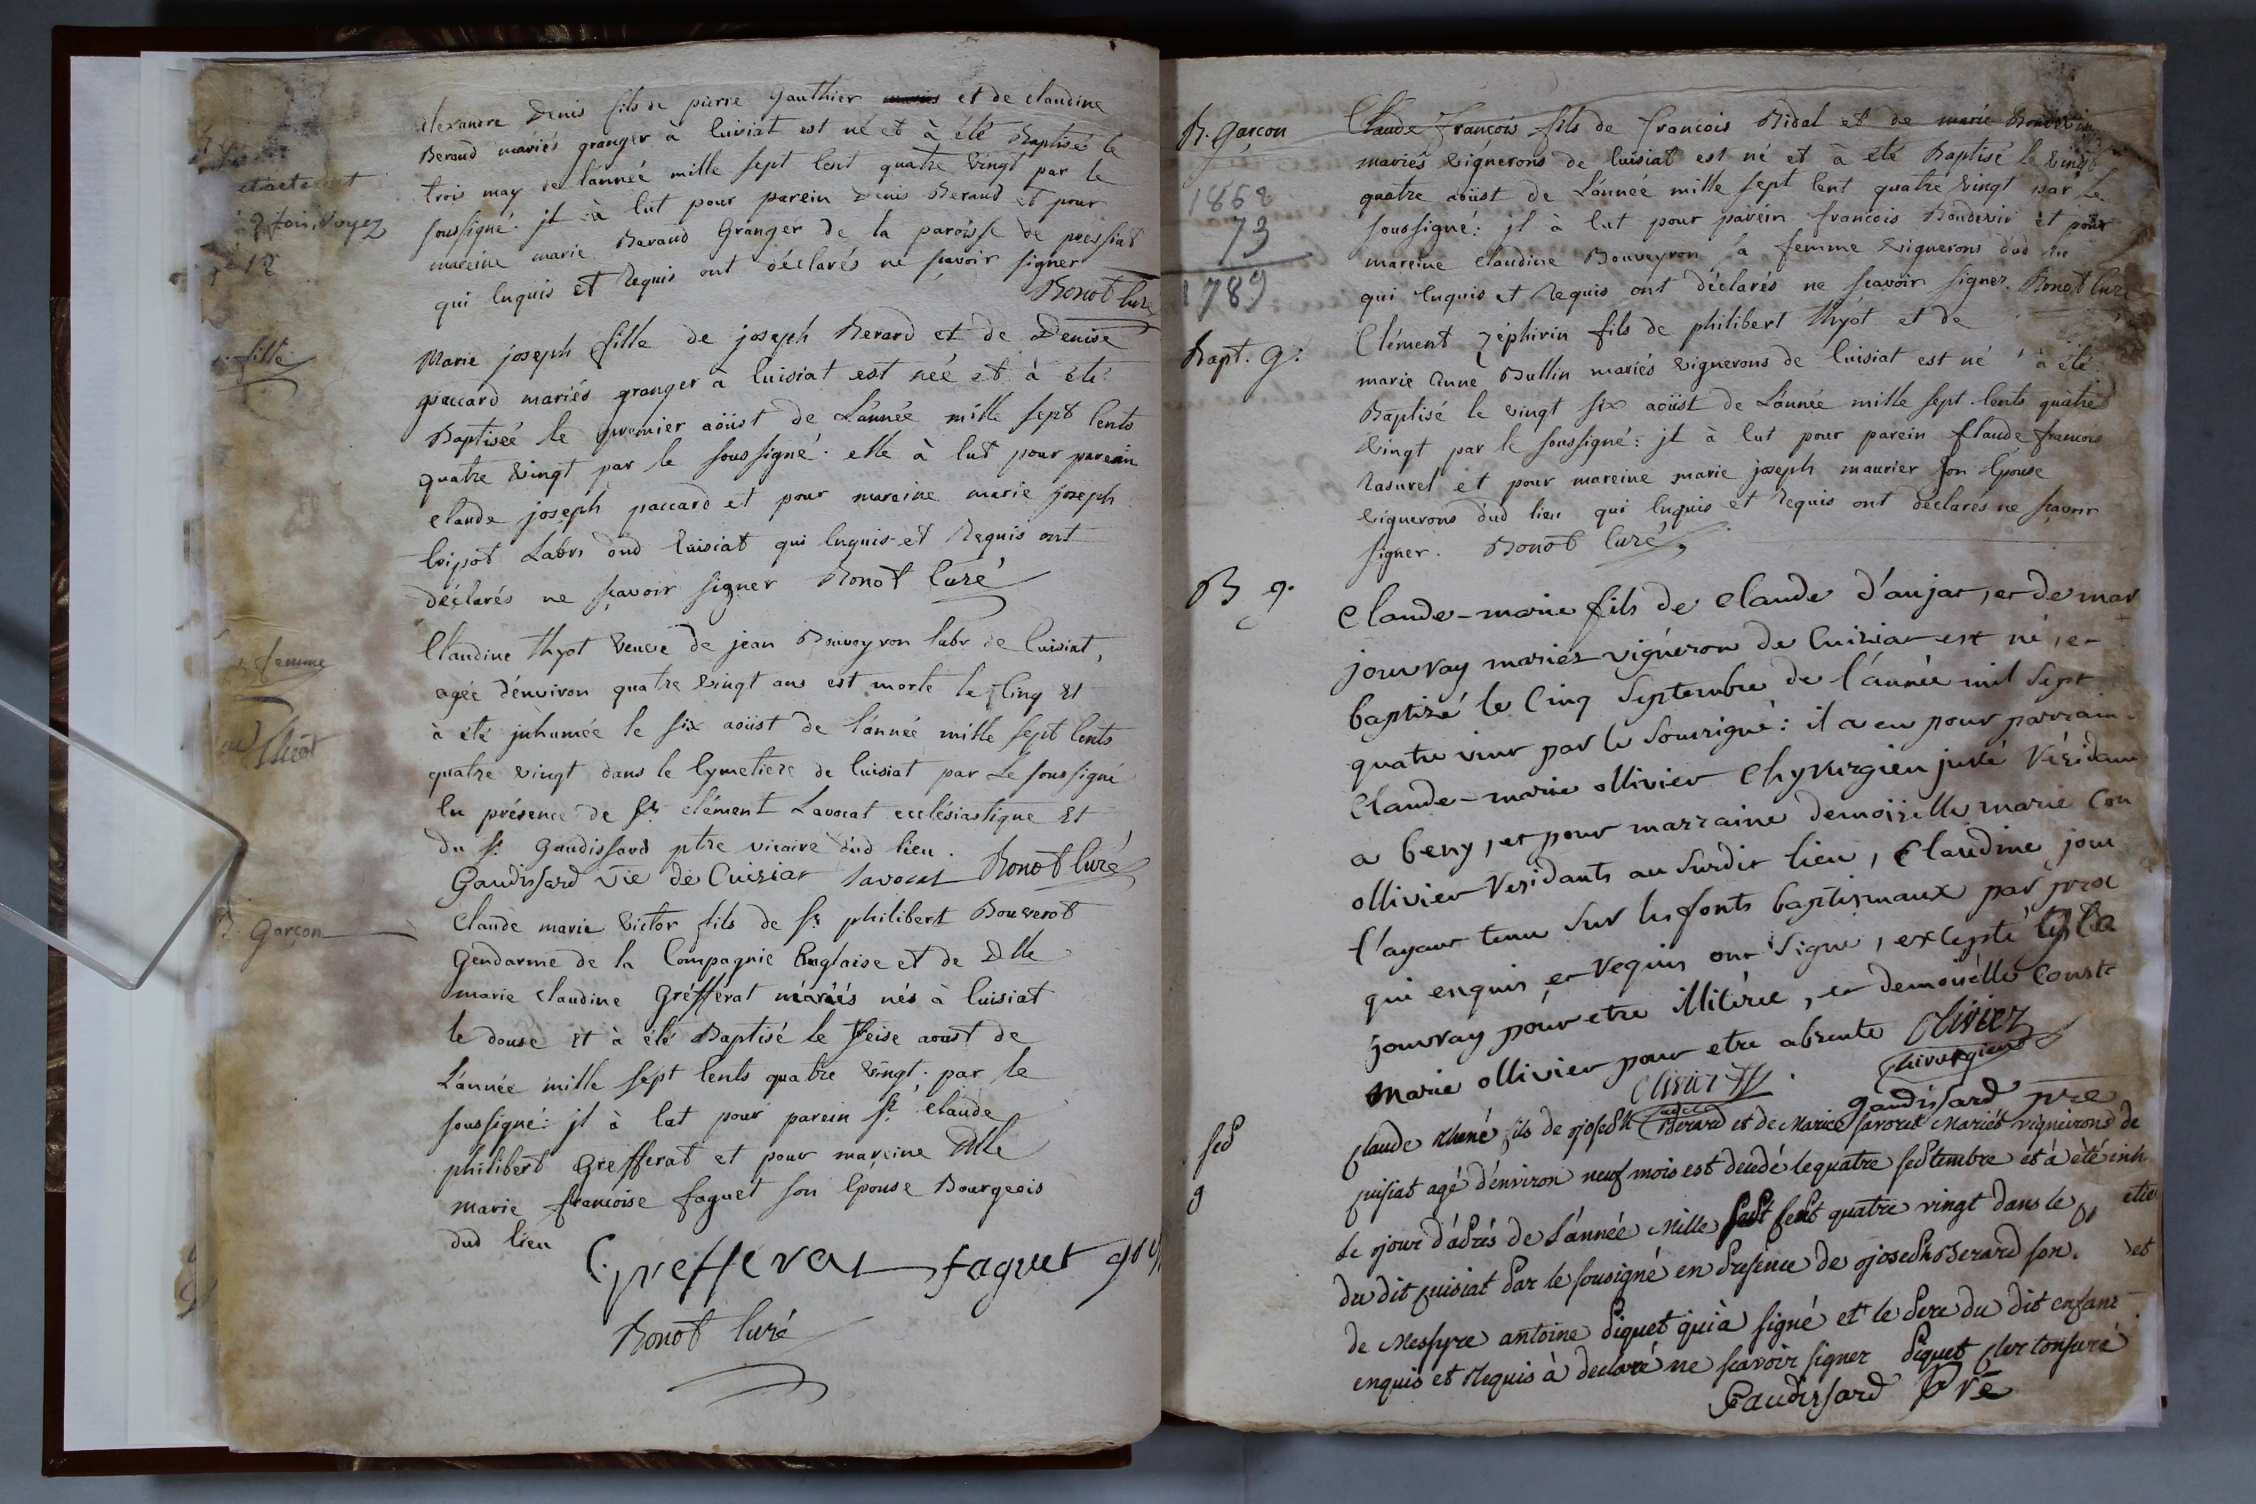 B. g.
et acte est
2 fois, voyez
alexandre Denis fils de pierre Gauthier et de claudine
Beraud mariés granger à Cuisiat est né et à été Baptisé le
trois may de l'année mille sept Cent quatre vingt par le
soussigné. jl à Eut pour parein Denis Beraud et pour
mareine marie Baraud Granger de la paroisse de pressiat
qui Enquis et Requis ont déclarés ne sçavoir signer
Bonot Curé
fille
Marie joseph fille de joseph Berard et de Denise
paccard mariés granger à Cuisiat est née et à été
Baptisée le premier aoüst de L'année mille sept Cents
quatre vingt par le soussigné. elle à Eut pour parein
claude joseph paccard et pour mareine marie joseph
Loipot Labrs dud Cuisiat qui Enquis et Requis ont
déclarés ne sçavoir signer Bonot Curé
femme
Claudine thyot veuve de jean Bouveyron labr de Cuisiat,
agée d'environ quatre vingt ans est morte le Cinq Et
à été jnhumée le six aoüst de l'année mille sept Cents
quatre vingt dans le Cymetiere de Cuisiat par Le soussigné
En présence de sr clément Lavocat ecclésiastique Et
du sr Gaudissard ptre vicaire dud lieu.
Gaudissard vic de Cuisiat Lavocat Bonot Curé
B. Garçon
Claude marie victor fils de sr philibert Bouverot
Gendarme de la Compagnie Englaise et de Dlle
marie claudine Gréfférat mariés nés à Cuisiat
le douse Et à été Baptisé le treise aoust de
L'année mille sept Cents quatre vingt. par le
soussigné: jl à Eut pour parein sr claude
philibert Grefferat et pour mareine Dlle
marie francoise faguet son Epouse Bourgeois
dud lieu
Grefferat faguet
Bonot Curé
B. garcon
Claude françois fils de francois Bidal et de marie Boudevin
mariés vignerons de Cuisiat est né et à été Baptisé le vingt
quatre aoüst de L'année mille sept Cent quatre vingt par Le
soussigné: jl à Eut pour parein francois Boudevin et pour
mareine claudine Bouveyron sa femme vignerons dud lieu
qui Enquis et Requis ont déclarés ne scavoir signer. Bonot Curé
1862
73
1789
Bapt. g:
Clément zéphirin fils de philibert thyot et de
marie Anne Bullin mariés vignerons de Cuisiat est né à été
Baptisé le vingt six aoüst de L'année mille sept Cents quatre
vingt par le soussigné: jl à Eut pour parein claude francois
Rasurel et pour mareine marie joseph maurier son Epouse
vignerons dud lieu qui Enquis et Requis ont déclarés ne sçavoir
signer. Bonot Curé
B g.
Claude-marie fils de Claude d'anjat, et de mar
jouvray mariés vigneron de Cuiziat est né, et
baptizé le Cinq Septembre de l'année mil Sept
quatre vint par le Sousigné: il a eu pour parrain
Claude-marie ollivier Chyrurgien juré Résidant
a beny, et pour marraine demoiselle marie Con
ollivier Residants au Surdit lieu, Claudine jou
l'ayant tenu Sur les fonts baptismaux par proc
qui enquis et Requis ont Signé, excepté
jouvray pour etre illitérée, et demoiselle Const
Marie ollivier pour etre absente Olivier
Chirurgien
Olivier
Gaudissard pre
sep
g
Claude Rhené fils de ojoseph Berard et de Marie savorët Mariés vignerons de
Cuisiat agé d'environ neuf mois est decedé le quatre septembre et à été inh
le ojour d'aprés de L'année Mille sept sent quatre vingt dans le
du dit Cuisiat par le sousigné en presence de ojoseph Berard son
de Messyre antoine piquet qui à signé et le pere du dit enfant
enquis et Requis à declaré ne scavoir signer piquet Cler tonsuré
Gaudissard pre